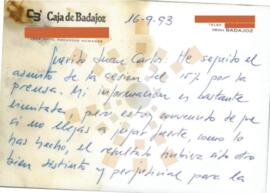 Caja de Badajoz
16-9-93
BADAJOZ
Querido Juan Carlos: He seguido el
asunto de la cesión del 15% por la
prensa. Mi información es bastante
limitada, pero estoy convencido de que
si no llegas a jugar fuerte, como lo
has hecho, el resultado hubiera sido otro
bien distinto y perjudicial para la